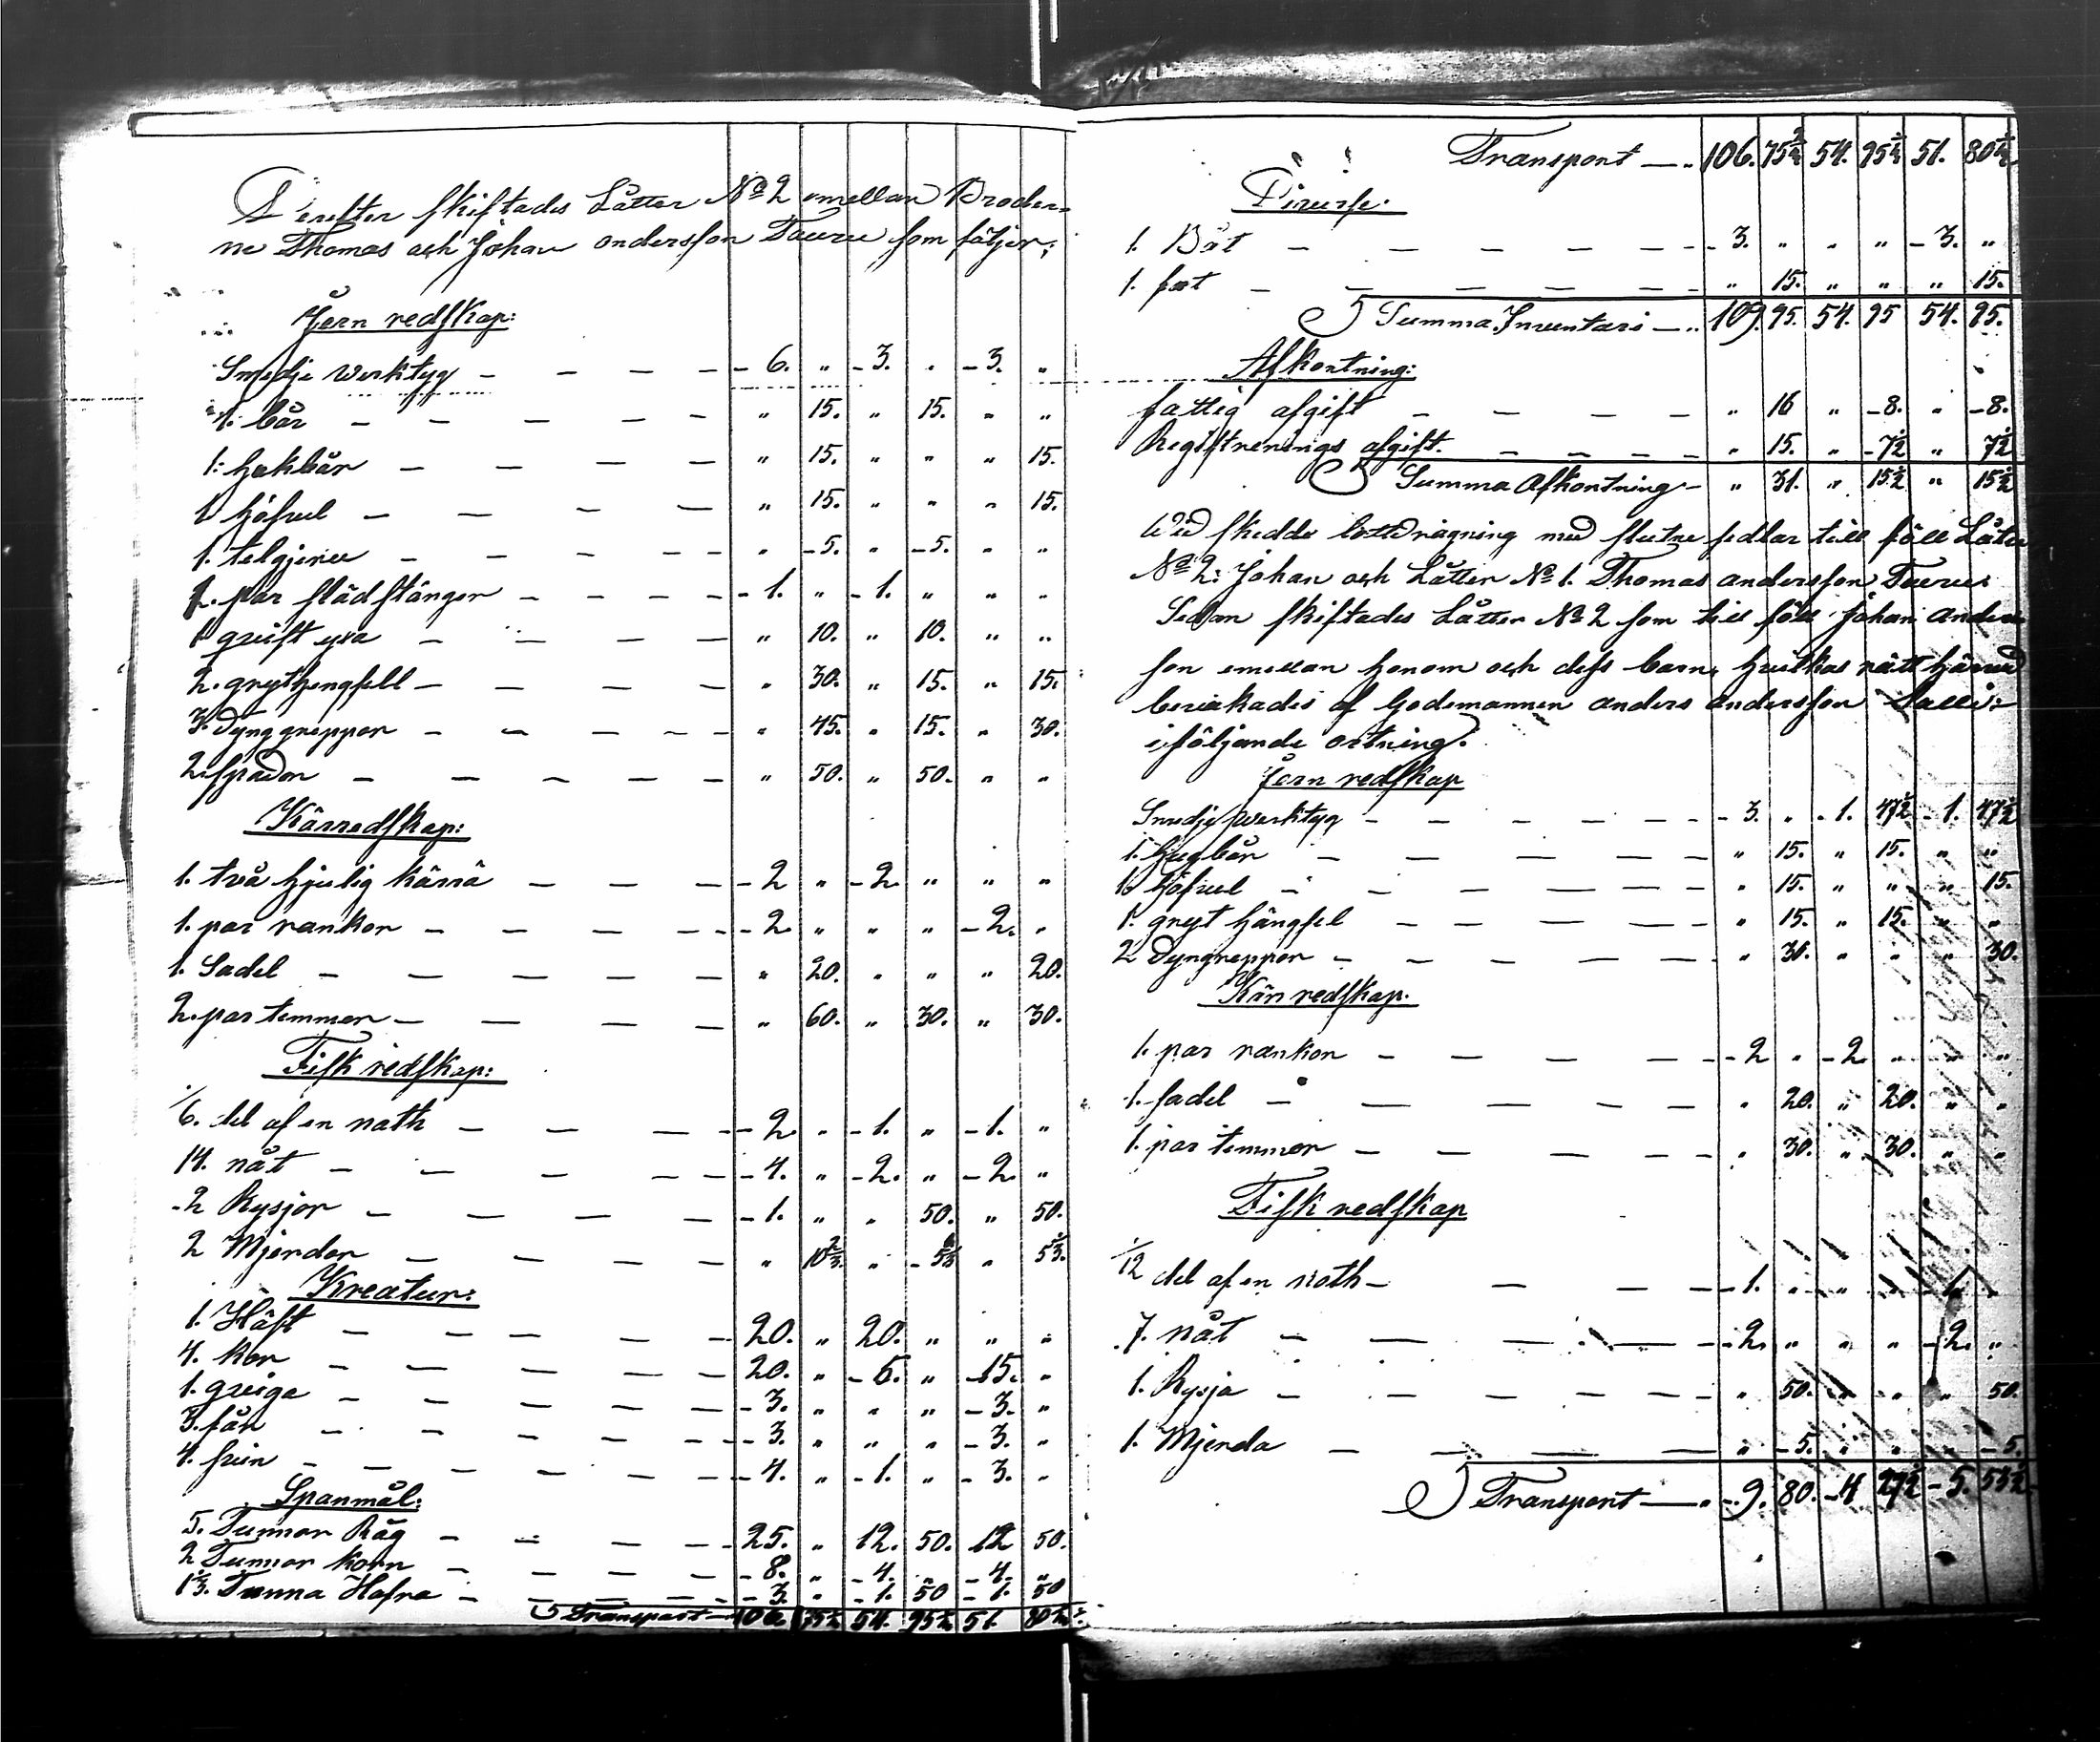 Derefter skiftades Låtter No 2 emellan Bröder-
ne Thomas och Johan andersson Tauru som följer;
Jern redskap:
Smedje werktyg — — — — 6. " 3. " 3. "
1. bår — — — — — " 15. " 15. " "
1: hakbår — — — — " 15. " " " 15.
1 höfvel — — — — " 15. " " " 15.
1. telgjern — — — — " 5. " 5. " "
2. par slädstänger — — — — 1. " 1. " " "
1 grift yxa — — — — " 10. " 10. " "
2. grythengsell — — — — " 30. " 15. " 15.
3. Dynggreppor — — — — " 45. " 15. " 30.
2. spador — — — — — " 50. " 50. " "
Kärredskap:
1. två hjulig kärrä — — — 2 " 2. " " "
1. par rankor — — — — 2. " " " 2. "
1. Sadel — — — — — " 20. " " " 20.
2. par temmor — — — — " 60. " 30. " 30.
Fisk redskap:
1/6. del af en noth — — — 2. " 1. " 1. "
14. nät — — — — 4. " 2. " 2. "
2 Rysjor — — — — 1. " " 50. " 50.
2 Mjerdor — — — — " 10 2/3. " 5 1/3 " 5 1/3.
Kreatur:
1. Häst — — — — 20. " 20. " " "
4. kor — — — — 20. " 5. " 15. "
1. qviga — — — — 3. " " " 3. "
3. får — — — — 3. " " " 3. "
4. svin — — — — 4. " 1. " 3. "
Spanmål:
5. Tunnor Råg — — — — 25. " 12. 50. 12 50.
2 Tunnor korn — — — — 8. " 4. " 4. "
1 1/3. Tunna Hafra — — — — 3. " 1. 50 1. 50
Transport — 106. 54. 51.
Transport — 106. 54. 51.
Diverse.
1. Båt — — — — — 3. " " " 3. "
1. fat — — — — — " 15. " " " 15.
Summa Inventari — 109. 95. 54. 95 54. 95.
Afkortning:
fattig afgift — — — — " 16 " 8. " 8.
Registrerings afgift. — — — — " 15. " 7 1/2 " 7 1/2
Summa Afkortning — " 31. " 15 1/2 " 15 1/2
Wid skedde lottdragning med slutne sedlar till föll Låtter
No 2: Johan och Låtter No 1. Thomas andersson Taurus
Sedan skiftades Låtter No 2 som till föll Johan anders
son emellan honom och dess barn, hvilkas rätt härwid
bevakades af Godemannen anders andersson
i följande ortning.
Jern redskap
Smedje werktyg — — — — 3. " 1. 47 1/2 1. 47 1/2
1. hugbår — — — — " 15. " 15. " "
1. höfvel — — — — " 15. " " " 15.
1. gryt hängsel — — — — " 15. " 15. " "
2 Dyngreppor — — — — " 30. " " " 30.
Kär redskap.
1. par rankor — — — — 2 " 2 " " "
1. sadel — — — — — " 20. " 20. " "
1. par temmor — — — — " 30. " 30. " "
Fisk redskap
1/12 del af en noth — — — 1. " " " 1. "
7. nät — — — — 2. " " " 2. "
1. Rysja — — — — " 50. " " " 50.
1. Mjerda — — — — " 5. " " " 5.
Transport — 9. 80. 4 27 1/2 5. 53 1/2